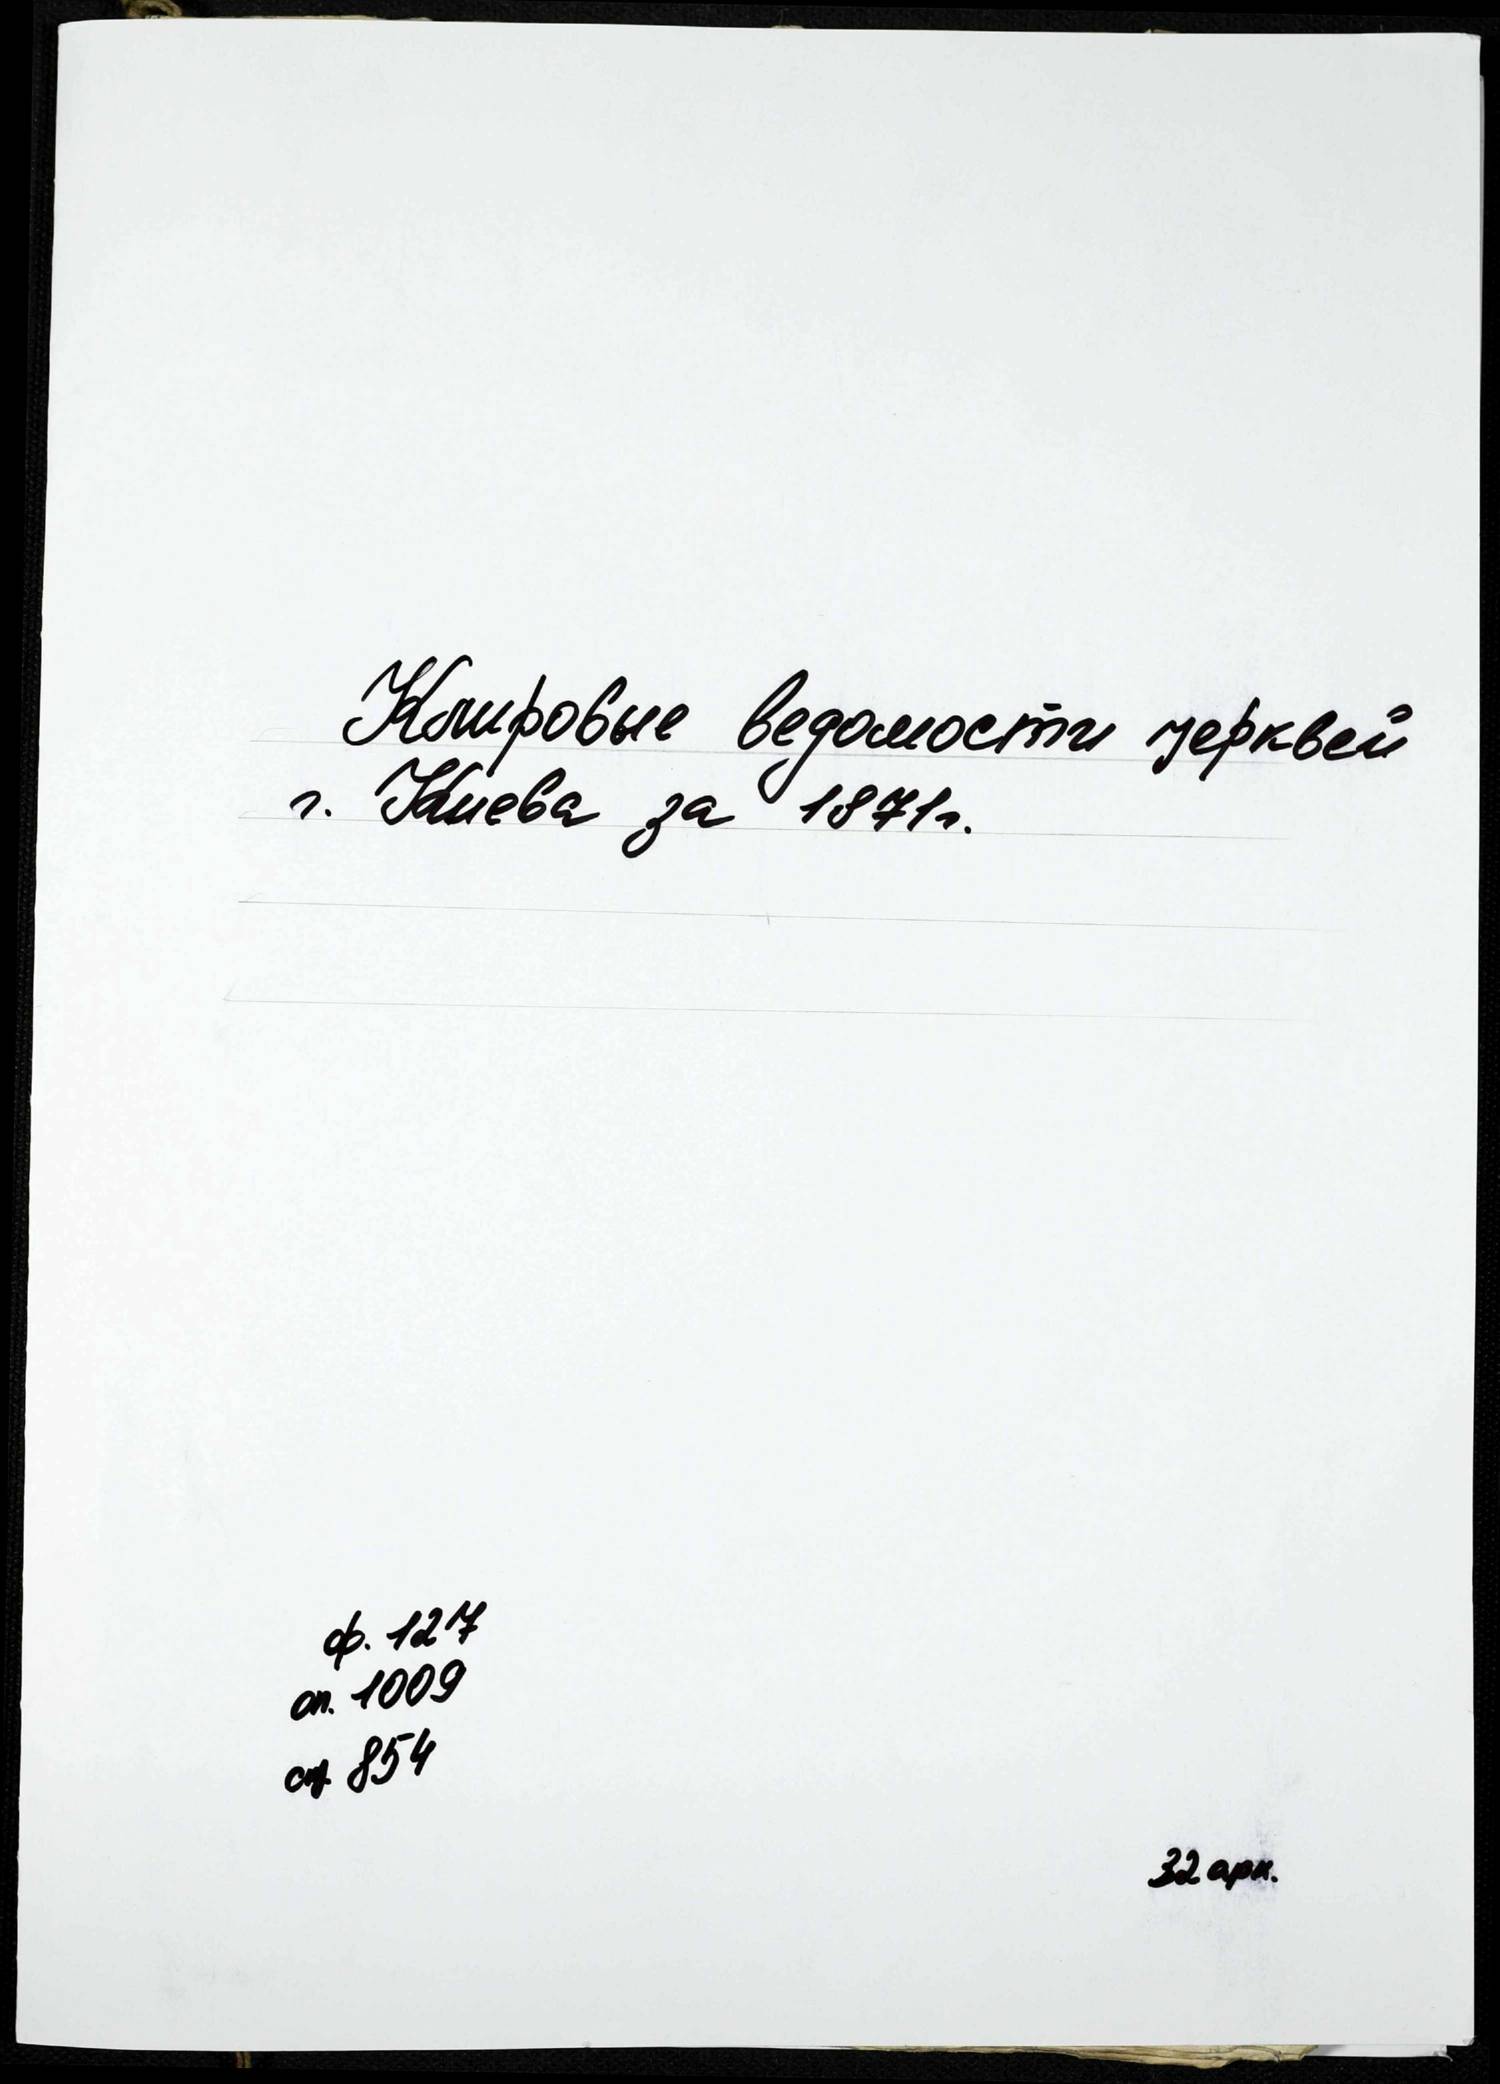 Клировые ведомости церквей
г. Киева за 1871г.
ф. 127
оп. 1009
спр. 854
32 арк.